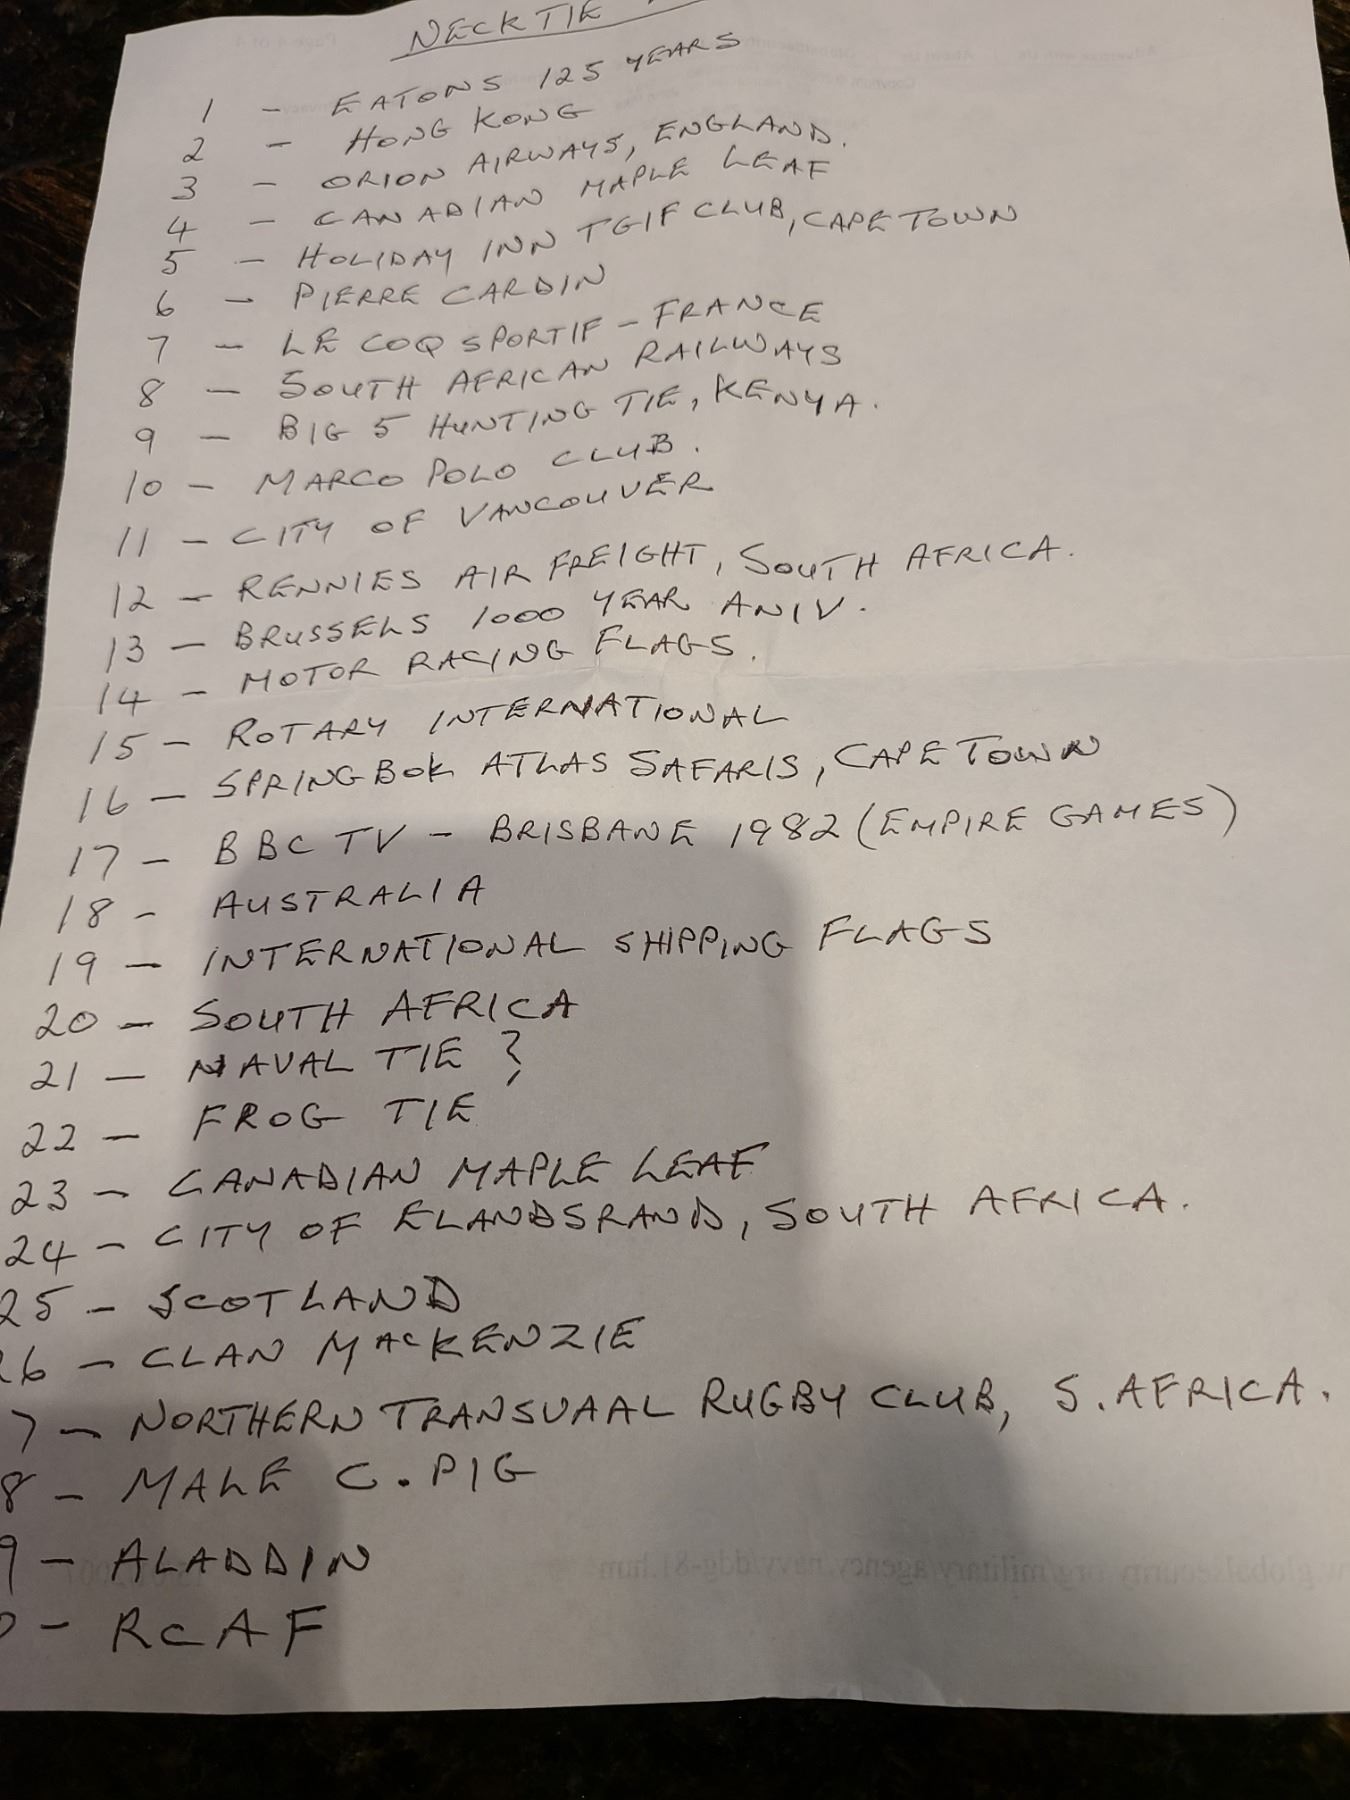 NECKTIE
1 - EATONS 125 YEARS
2 - HONG KONG
3 - ORION AIRWAYS, ENGLAND.
4 - CANADIAN MAPLE LEAF
5 - HOLIDAY INN TGIF CLUB, CAPE TOWN
6 - PIERRE CARDIN
7 - LE COQ SPORTIF - FRANCE
8 - SOUTH AFRICAN RAILWAYS
9 - BIG 5 HUNTING TIE, KENYA.
10 - MARCO POLO CLUB.
11 - CITY OF VANCOUVER
12 - RENNIES AIR FREIGHT, SOUTH AFRICA.
13 - BRUSSELS 1000 YEAR ANIV.
14 - MOTOR RACING FLAGS.
15 - ROTARY INTERNATIONAL
16 - SPRINGBOK ATLAS SAFARIS, CAPE TOWN
17 - BBC TV - BRISBANE 1982 (EMPIRE GAMES)
18 - AUSTRALIA
19 - INTERNATIONAL SHIPPING FLAGS
20 - SOUTH AFRICA
21 - NAVAL TIE ?
22 - FROG TIE
23 - CANADIAN MAPLE LEAF
24 - CITY OF ELANDSRAND, SOUTH AFRICA.
25 - SCOTLAND
26 - CLAN MACKENZIE
7 - NORTHERN TRANSVAAL RUGBY CLUB, S. AFRICA.
8 - MALE C. PIG
9 - ALADDIN
0 - RCAF